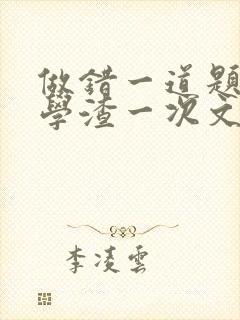 做錯一道題
學渣一次文
李凌雲